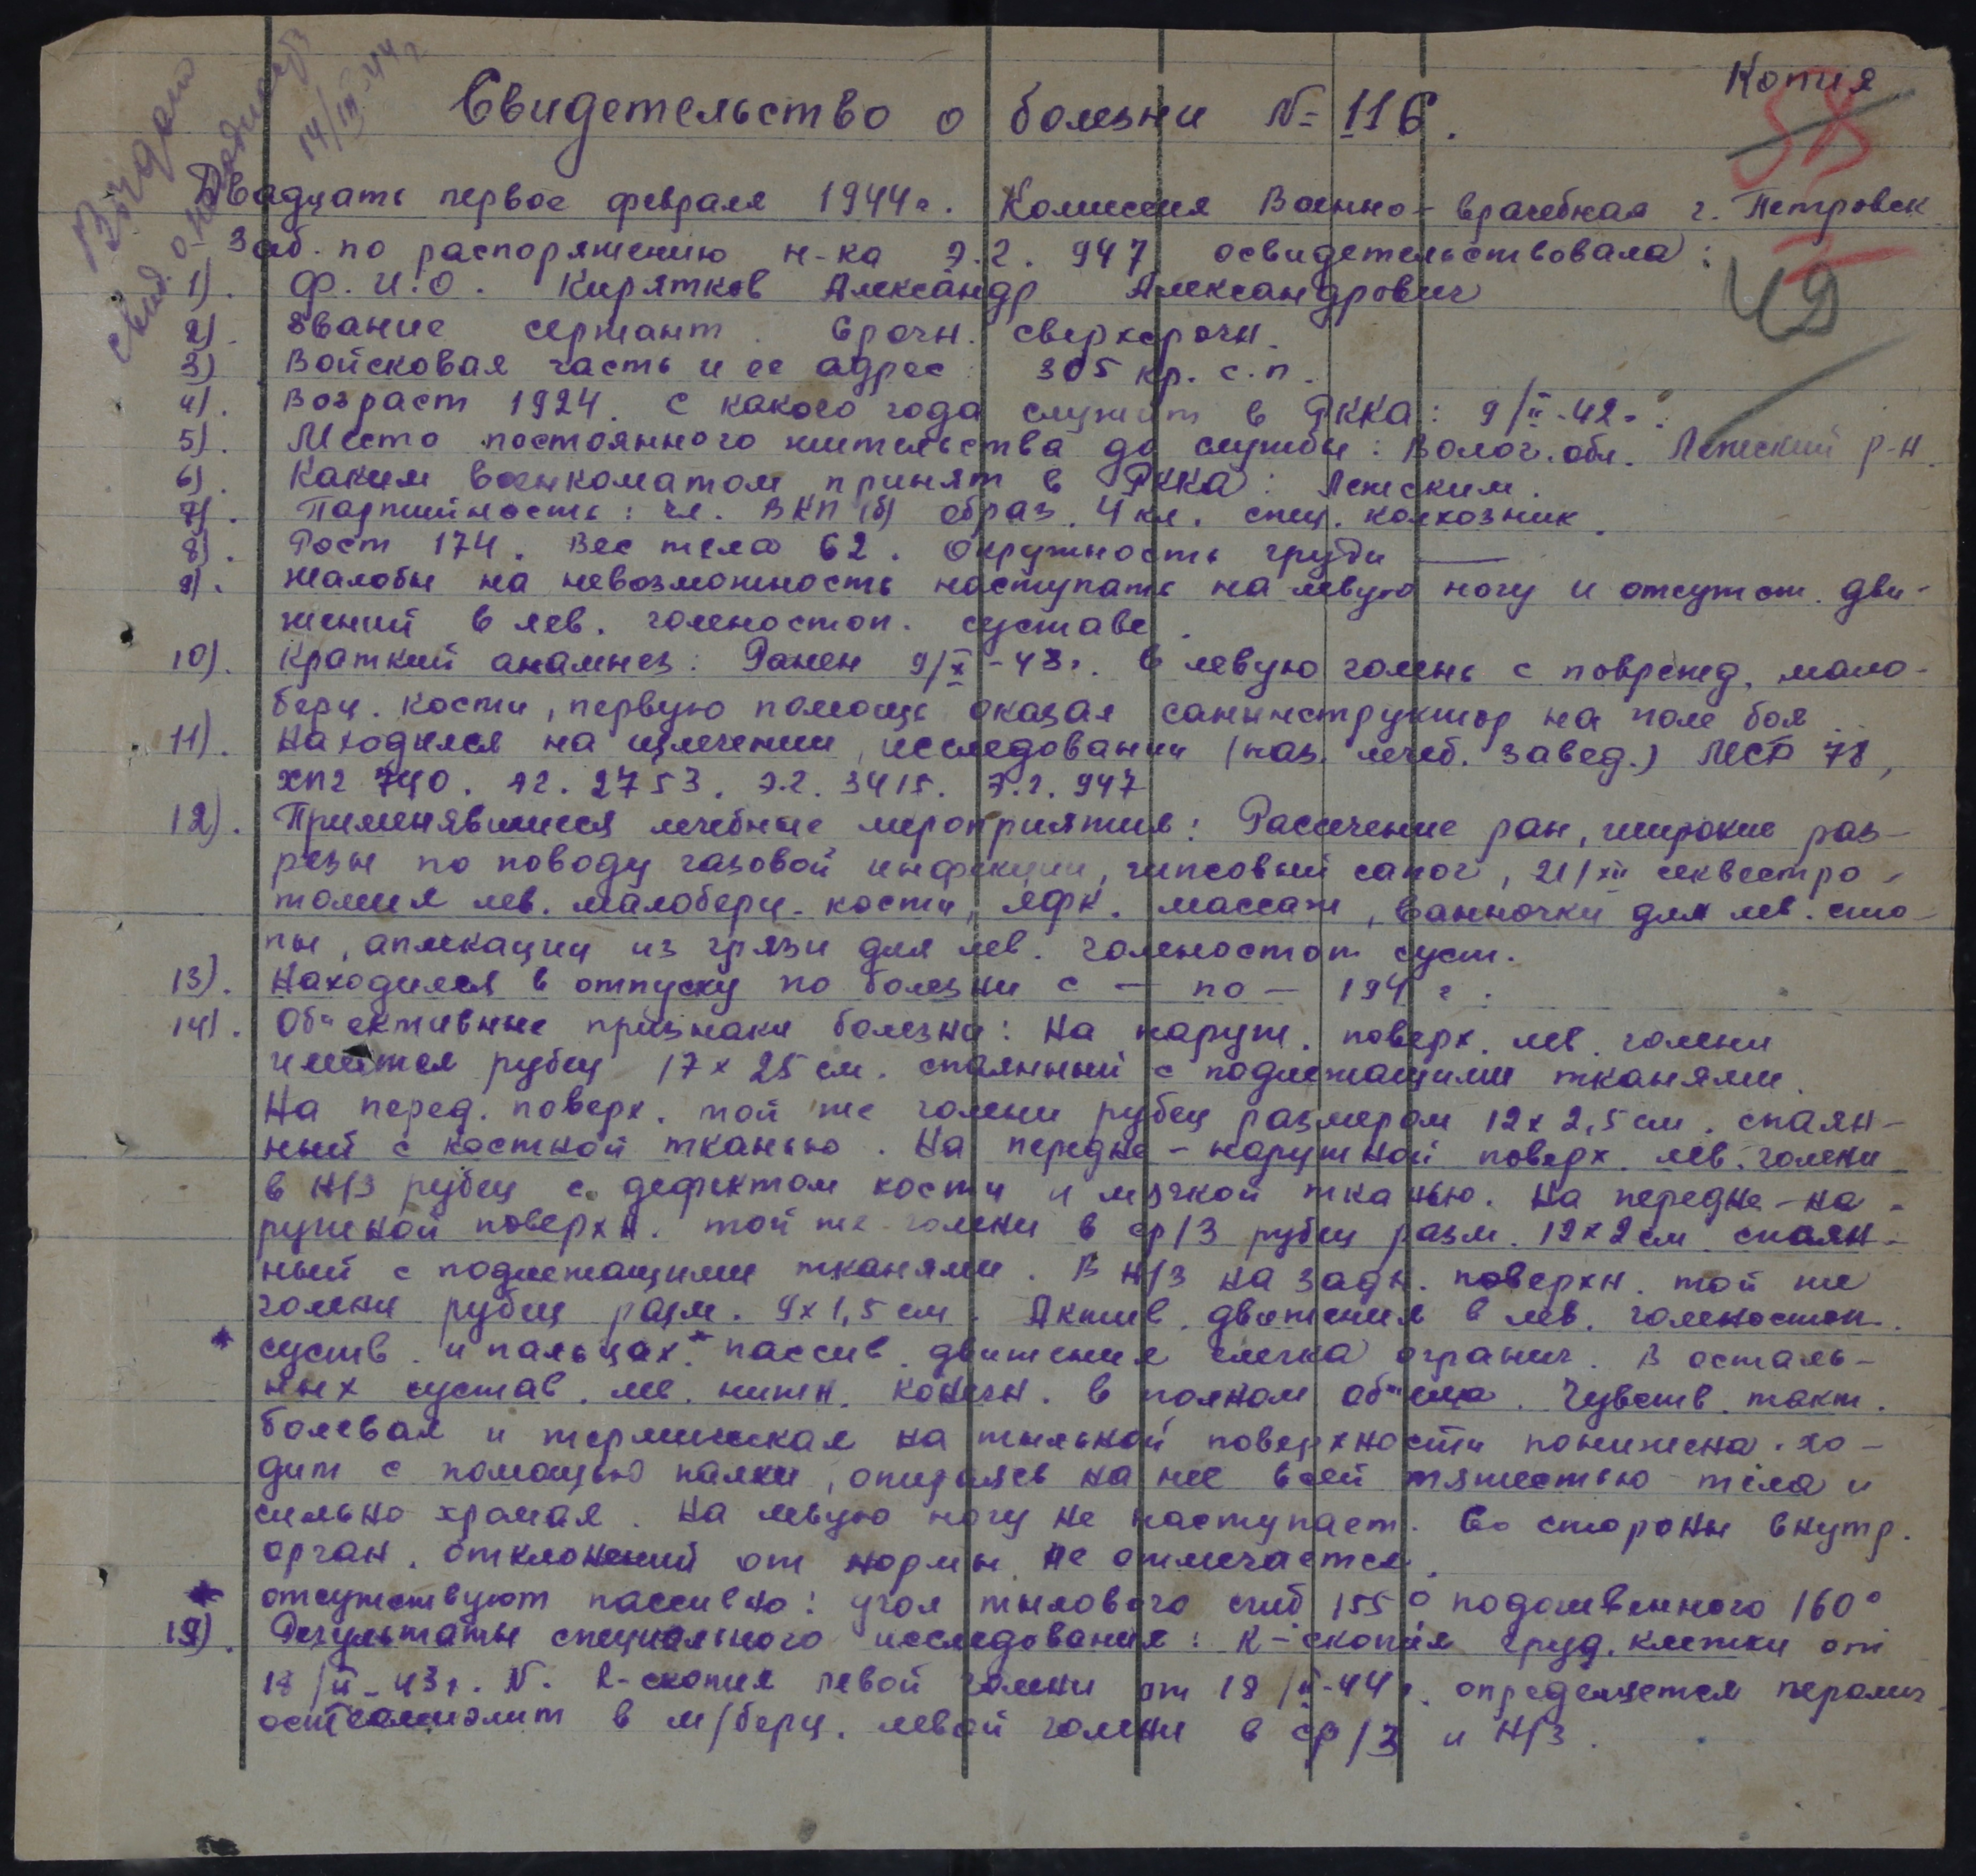 Копия
Свидетельство о болезни № 116.
58
Выдан
свид. о
14/III-44 г
Двадцать первое февраля 1944г. Комиссия Военно-врачебная г. Петровск
Заб. по распоряжению н-ка Э.Г. 947 освидетельствовала:
49
1). Ф.И.О. Кирятков Александр Александрович
2). Звание сержант. Срочн. сверхсрочн.
3) Войсковая часть и ее адрес: 305 кр. с.п.
4). Возраст 1924. С какого года служит в РККА: 9/II-42г.
5). Место постоянного жительства до службы: Волог. обл. Лежский р-н.
6). Каким военкоматом принят в РККА: Лежским.
7). Партийность: чл. ВКП(б) образ. 4 кл. спец. колхозник.
8). Рост 174. Вес тела 62. Окружность груди —
9). Жалобы на невозможность наступать на левую ногу и отсутст. дви-
жений в лев. голеностоп. суставе.
10). Краткий анамнез: Ранен 9/X-43г. в левую голень с поврежд. мало-
берц. кости, первую помощь оказал санинструктор на поле боя.
11). Находился на излечении, исследовании (наз. лечеб. завед.) МСБ 78,
ХПГ 740. ЭГ. 2753. Э.Г. 3415. Э.Г. 947
12). Применявшиеся лечебные мероприятия: Рассечение ран, широкие раз-
резы по поводу газовой инфекции, гипсовый сапог, 21/XII секвестро-
томия лев. малоберц. кости, ЛФК. массаж, ванночки для лев. сто-
пы, апликации из грязи для лев. голеностоп суст.
13). Находился в отпуску по болезни с — по — 194 г.
14). Объективные признаки болезни: На наруж. поверх. лев. голени
имеется рубец 17 х 25 см. спаянный с подлежащими тканями.
На перед. поверх. той же голени рубец размером 12 х 2,5 см. спаян-
ный с костной тканью. На передне-наружной поверх. лев. голени
в Н/З рубец с дефектом кости и мягкой тканью. На передне-на-
ружной поверхн. той же голени в ср/З рубец разм. 12 х 2 см спаян-
ный с подлежащими тканями. В Н/З на задн. поверхн. той же
голени рубец разм. 9 х 1,5 см. Актив. движения в лев. голеностоп.
* сустав. и пальцах.* пассив. движения слегка огранич. В осталь-
ных сустав. лев. нижн. конечн. в полном объеме. Чувств. такт.
болевая и термическая на тыльной поверхности понижена. Хо-
дит с помощью палки, опираясь на нее всей тяжестью тела и
сильно хромая. На левую ногу не наступает. Со стороны внутр.
орган. отклонений от нормы не отмечается.
* отсутствуют пассивно: угол тылового сгиб 155° подошвенного 160°
15). Результаты специального исследования: R-скопия груд. клетки от
18/II-43г. N. R-скопия левой голени от 18/II-44г. определяется
остеомиэлит в м/берц. левой голени в ср/З и Н/З.